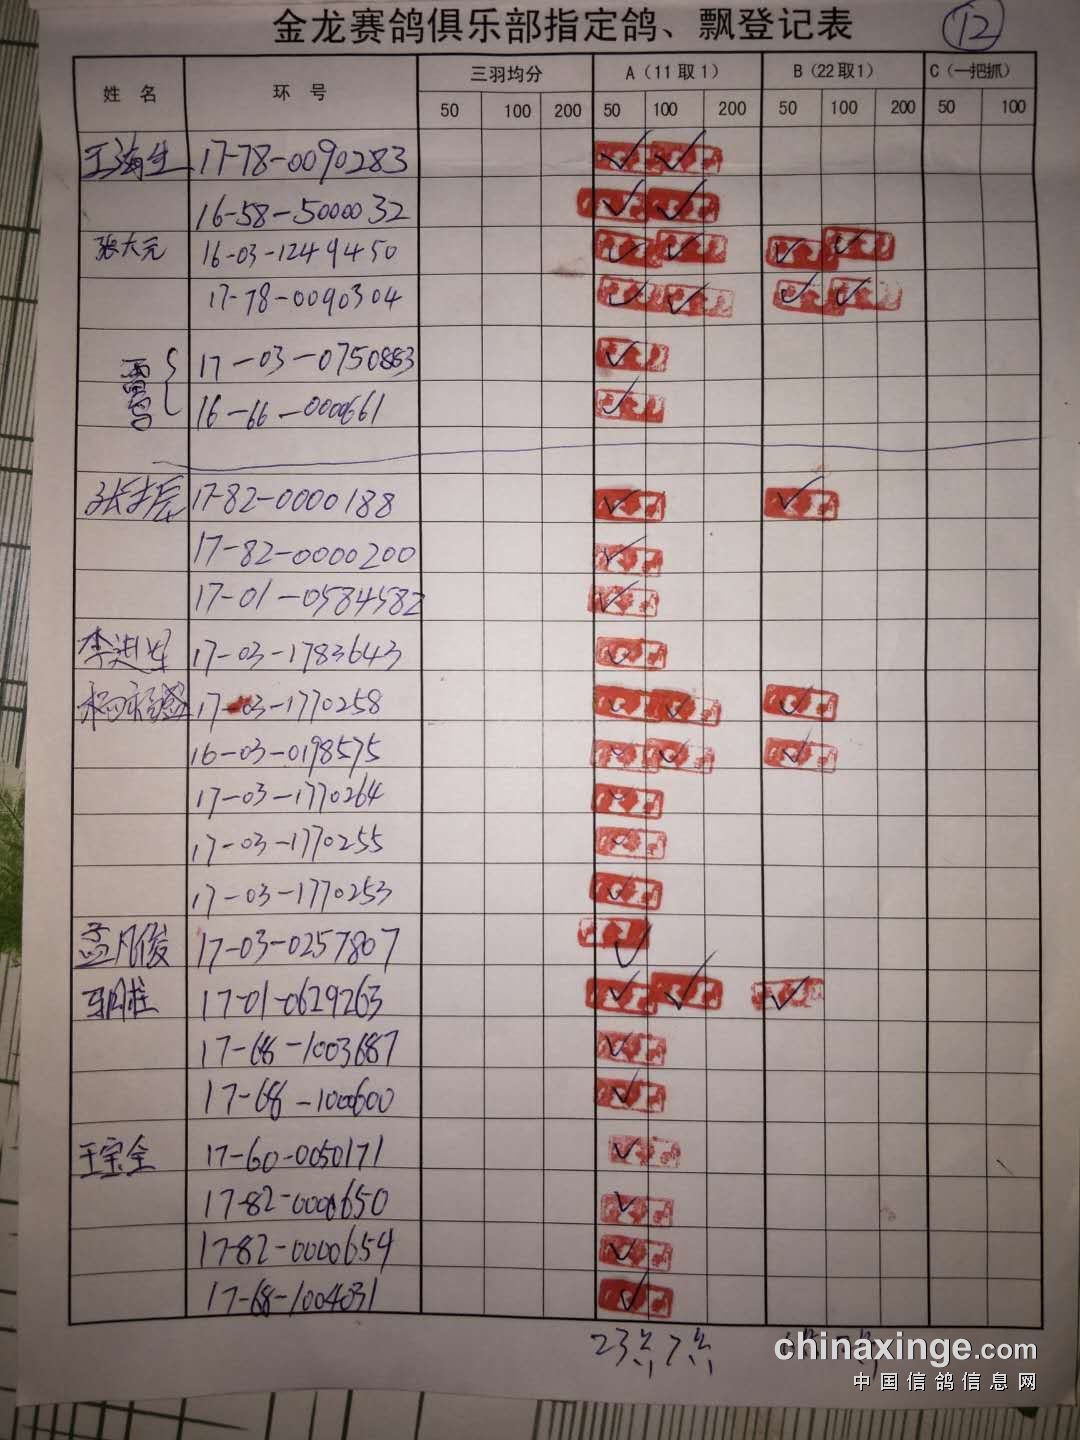 金龙赛鸽俱乐部指定鸽、飘登记表
12
姓 名 环 号 三羽均分 A（11取1） B（22取1） C（一把抓）
50 100 200 50 100 200 50 100 200 50 100
王海生 17-78-0090283
16-58-5000032
张大元 16-03-1249450
17-78-0090304
17-03-0750883
16-66-0000661
17-82-0000188
17-82-0000200
17-01-0584582
李进军 17-03-1783643
17-03-1770258
16-03-0198575
17-03-1770264
17-03-1770255
17-03-1770253
孟凡俊 17-03-0257807
17-01-0629263
17-68-1003687
17-68-1000600
王宝全 17-60-0050171
17-82-0000650
17-82-0000654
17-68-1004031
23点 7点
chinaxinge.com
中国信鸽信息网